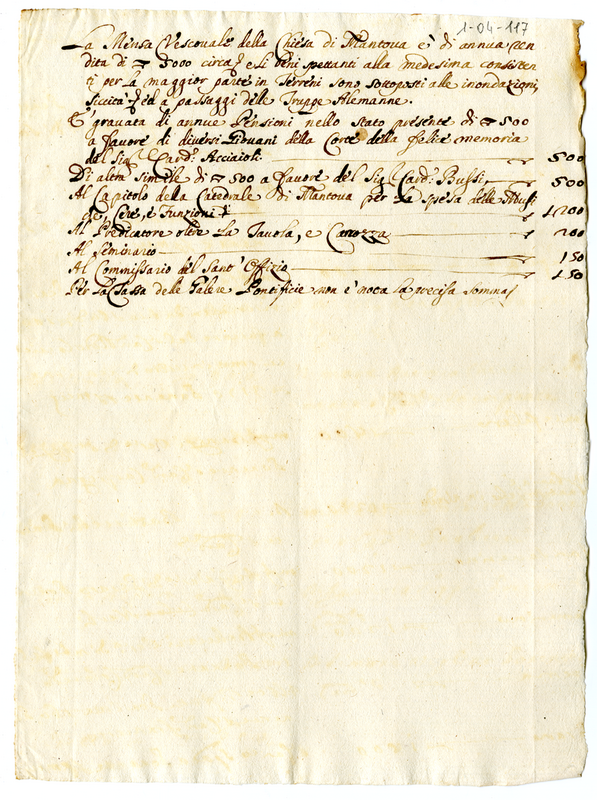 1-04-117
La Mensa Vescovale della Chiesa di Mantova è di annua ren
dita di 5000 circa, e li beni spettanti alla medesima consisten
ti per la maggior parte in Terreni sono sottoposti alle inondazioni,
siccità, ed a passaggi delle Truppe Alemanne.
E' gravata di annue Pensioni nello stato presente di 500
a favore di diversi Giovani della Corte della felice memoria
del Sig.r Card. Acciaioli 500
Di altra simile di 500 a favore del Sig.r Card. Bussi 500
Al Capitolo della Catedrale di Mantova per la spesa delle
Cere, e Funzioni 1200
Al Predicatore oltre la Tavola, e Carozza 200
Al Seminario 150
Al Commissario del Sant' Offizio 150
Per la Tassa delle Galere Pontificie non è nota la precisa somma